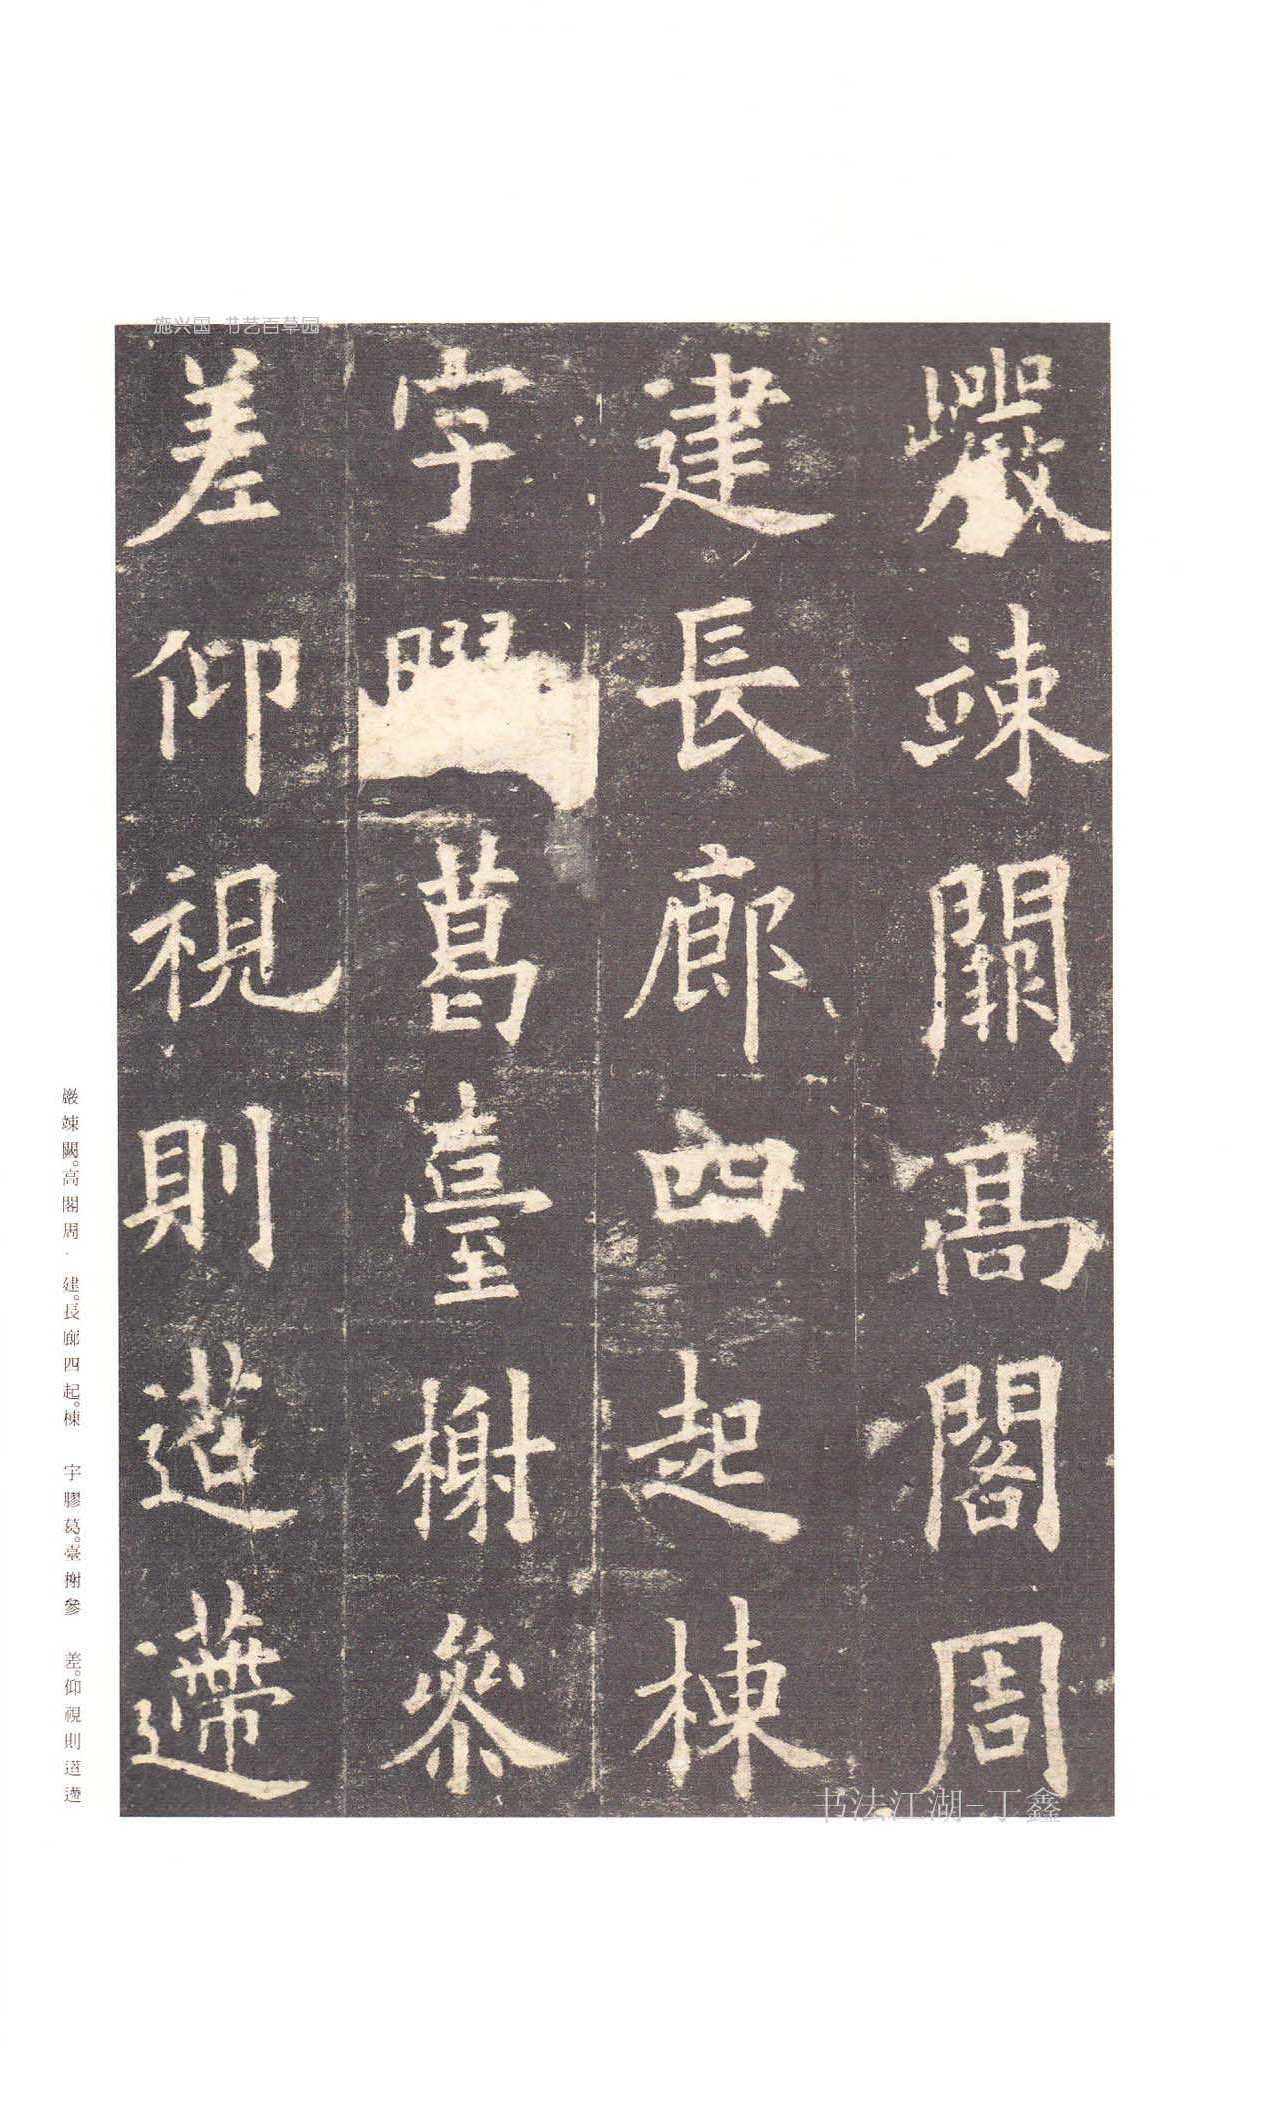 巖竦闕高閣周
建長廊四起棟
宇膠葛臺榭參
差仰視則迢遰
巖竦闕。高閣周 建。長廊四起。棟 宇膠葛。臺榭參 差。仰視則迢遰
施兴国 书艺百草园
书法江湖-丁鑫